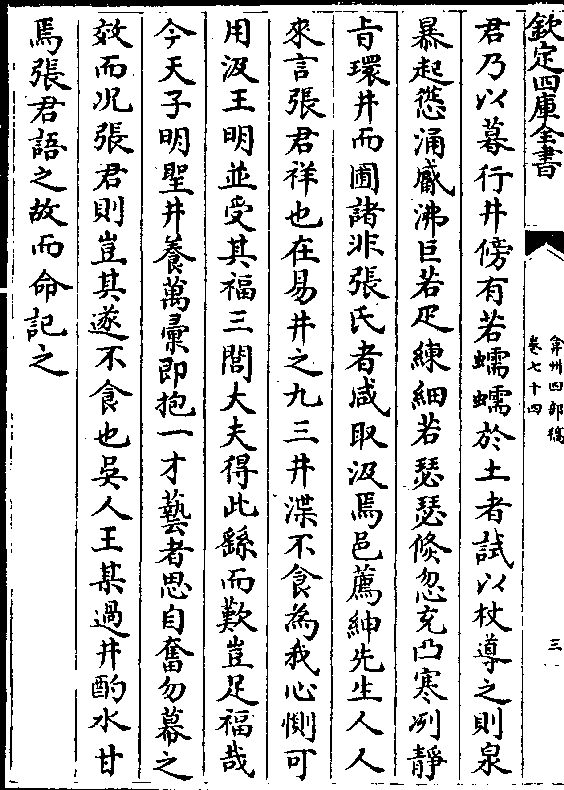 欽定四庫全書
弇州四部稿
卷七十四
三
君乃以暮行井傍有若蠕蠕於土者試以杖導之則泉
暴起慫涌觱沸巨若疋練細若瑟瑟倐忽充凸寒冽靜
㫖環井而圃諸非張氏者咸取汲焉邑薦紳先生人人
來言張君祥也在易井之九三井渫不食為我心惻可
用汲王明並受其福三閭大夫得此繇而歎豈足福哉
今天子明聖井養萬彚即抱一才藝者思自奮勿幕之
效而况張君則豈其遂不食也吳人王某過井酌水甘
焉張君語之故而命記之